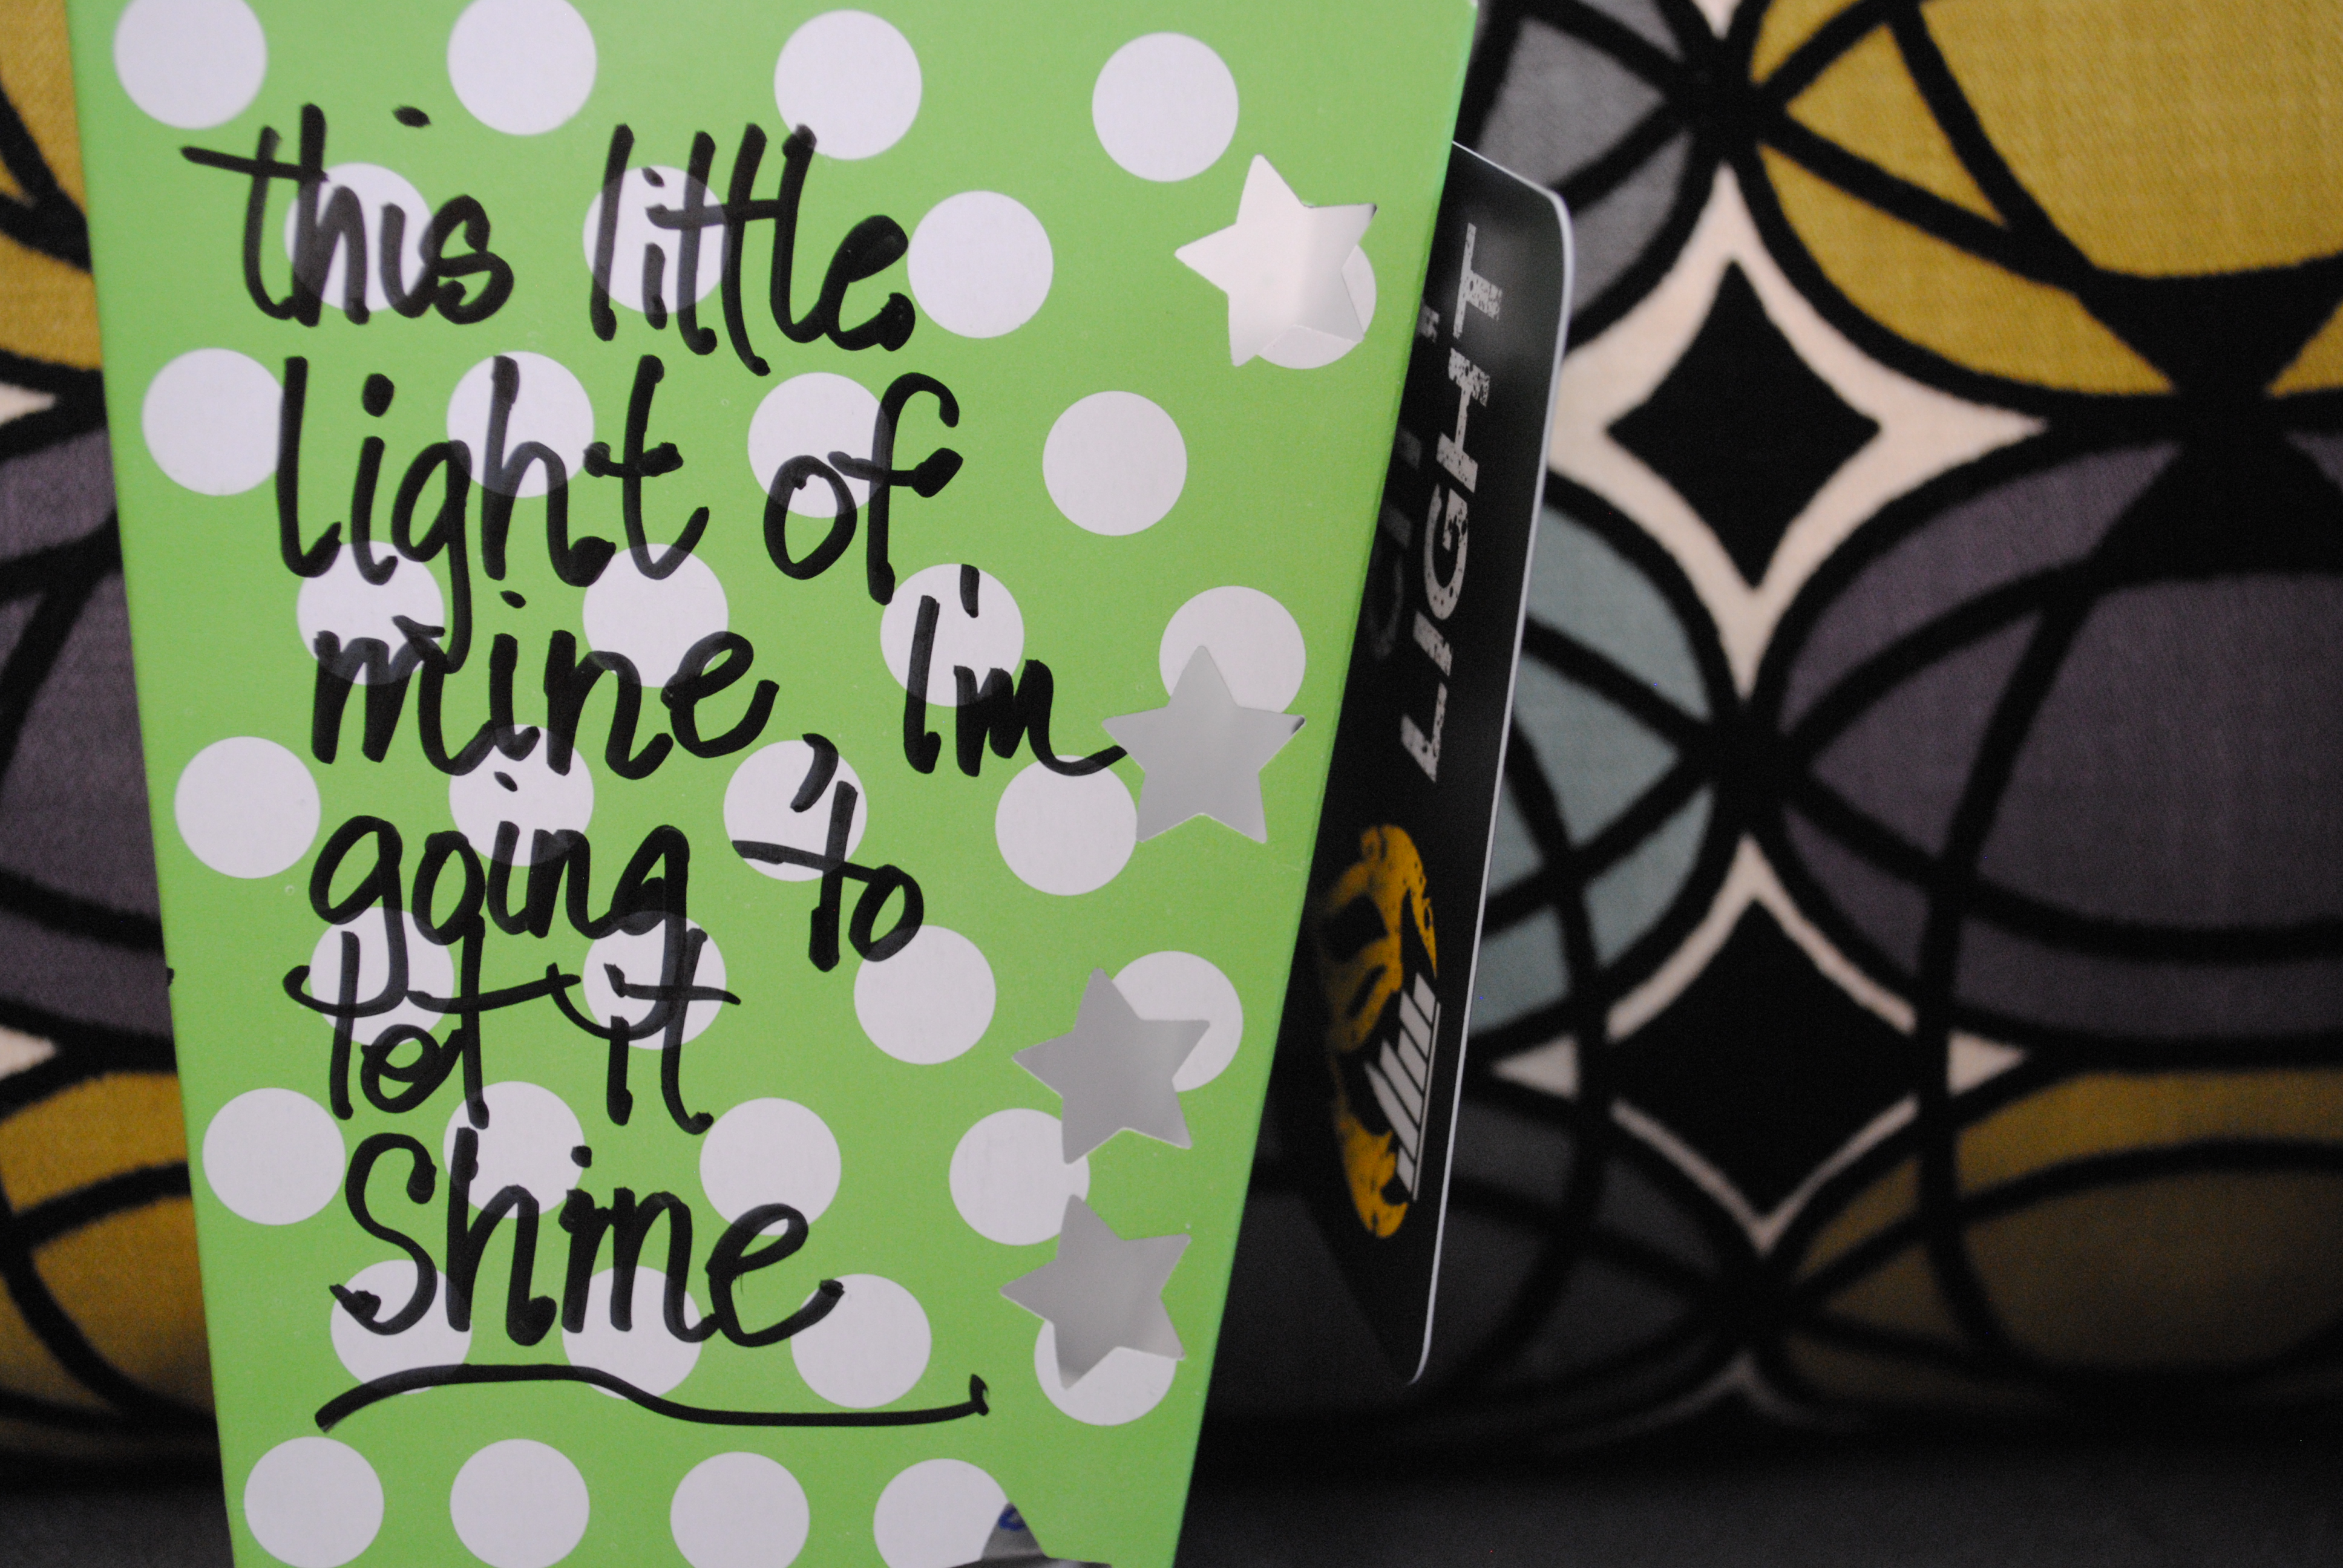 this little
light of
mine, I'm
going to
let it
Shine
LIGHT